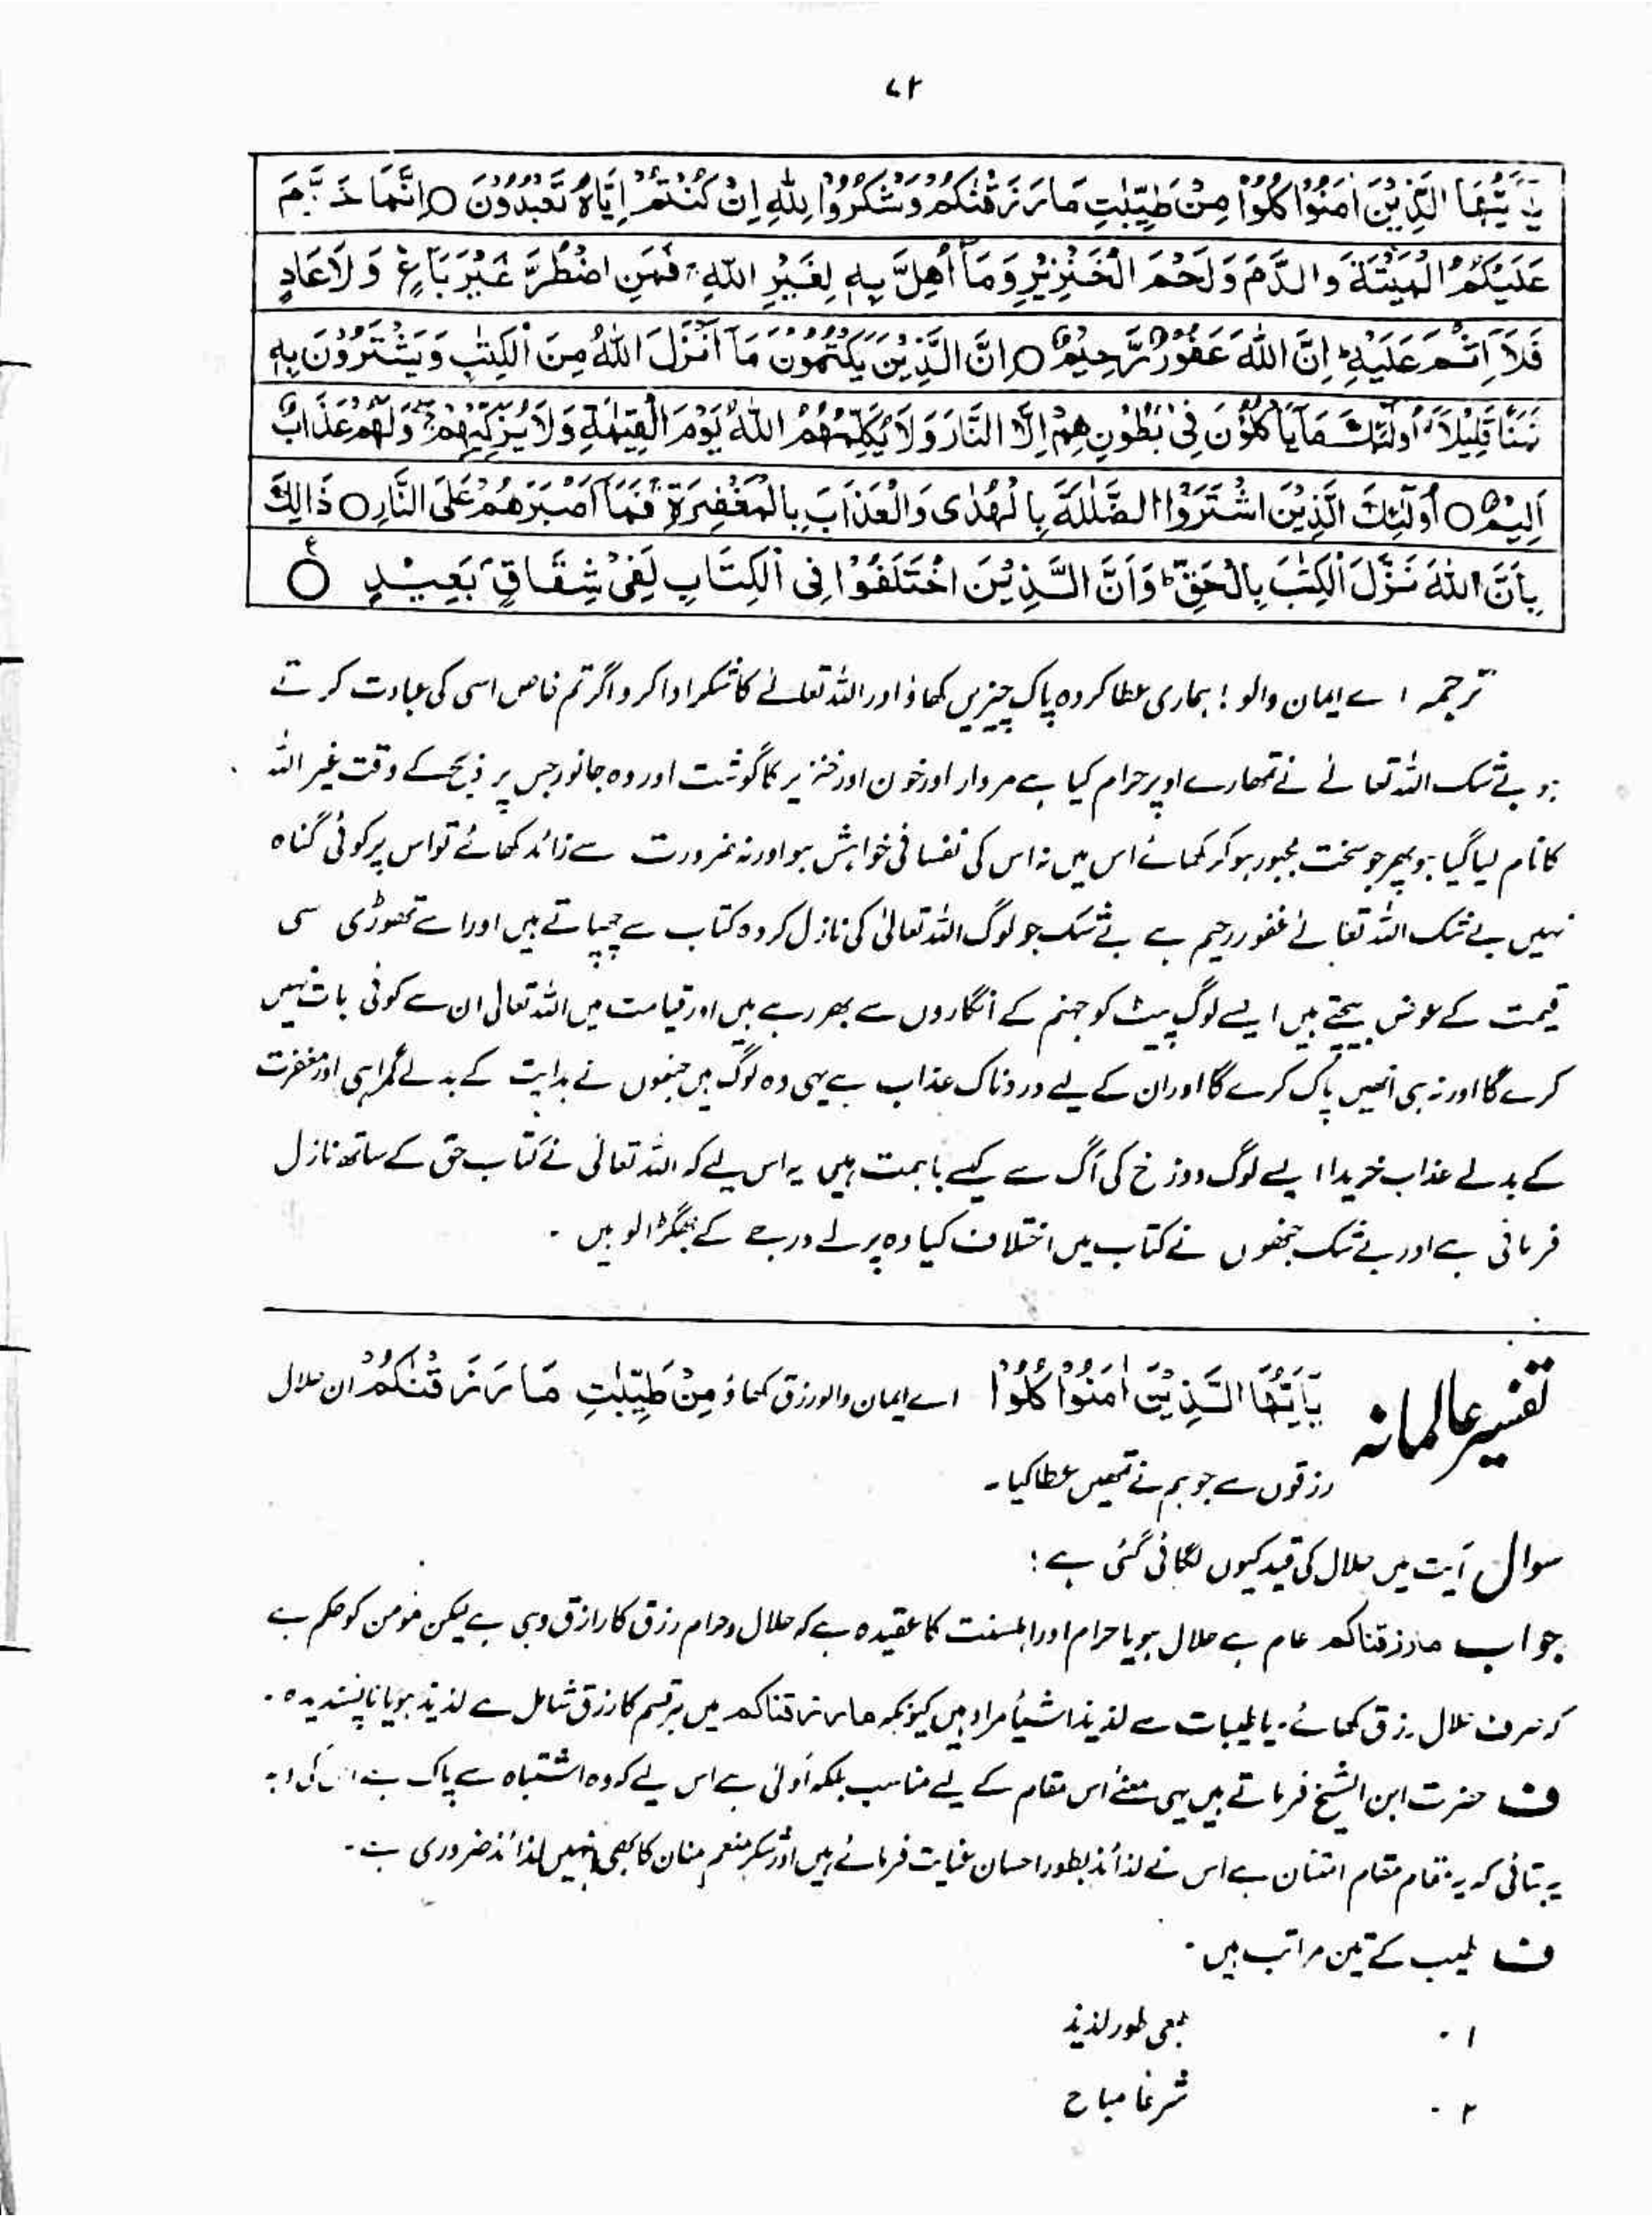 ۷۲
یٰۤاَیُّهَا الَّذِیْنَ اٰمَنُوْا كُلُوْا مِنْ طَیِّبٰتِ مَا رَزَقْنٰكُمْ وَشْكُرُوْا لِلّٰهِ اِنْ كُنْتُمْ اِیَّاهُ تَعْبُدُوْنَ ○ اِنَّمَا حَرَّمَ
عَلَیْكُمُ الْمَیْتَةَ وَالدَّمَ وَلَحْمَ الْخِنْزِیْرِ وَمَاۤ اُهِلَّ بِهٖ لِغَیْرِ اللّٰهِ ۚ فَمَنِ اضْطُرَّ غَیْرَ بَاغٍ وَّلَا عَادٍ
فَلَاۤ اِثْمَ عَلَیْهِ ؕ اِنَّ اللّٰهَ غَفُوْرٌ رَّحِیْمٌ ○ اِنَّ الَّذِیْنَ یَكْتُمُوْنَ مَاۤ اَنْزَلَ اللّٰهُ مِنَ الْكِتٰبِ وَیَشْتَرُوْنَ بِهٖ
ثَمَنًا قَلِیْلًا ۙ اُولٰٓئِكَ مَا یَاْكُلُوْنَ فِیْ بُطُوْنِهِمْ اِلَّا النَّارَ وَلَا یُكَلِّمُهُمُ اللّٰهُ یَوْمَ الْقِیٰمَةِ وَلَا یُزَكِّیْهِمْ ۖ وَلَهُمْ عَذَابٌ
اَلِیْمٌ ○ اُولٰٓئِكَ الَّذِیْنَ اشْتَرَوُا الضَّلٰلَةَ بِالْهُدٰى وَالْعَذَابَ بِالْمَغْفِرَةِ ۚ فَمَاۤ اَصْبَرَهُمْ عَلَى النَّارِ ○ ذَالِكَ
بِاَنَّ اللّٰهَ نَزَّلَ الْكِتٰبَ بِالْحَقِّ ؕ وَاَنَّ الَّذِیْنَ اخْتَلَفُوْا فِی الْكِتَابِ لَفِیْ شِقَاقٍۭ بَعِیْدٍ ○ ع
ترجمہ اے ایمان والو! ہماری عطا کردہ پاک چیزیں کھاؤ اور اللہ تعالےٰ کا شکر ادا کرو اگر تم خاص اسی کی عبادت کرتے
ہو بے شک اللہ تعالےٰ نے تمھارے اوپر حرام کیا ہے مردار اور خون اور خنزیر کا گوشت اور وہ جانور جس پر ذبح کے وقت غیر اللہ
کا نام لیا گیا ہو پھر جو سخت مجبور ہو کر کھائے اس میں نہ اس کی نفسانی خواہش ہو اور نہ ضرورت سے زائد کھائے تو اس پر کوئی گناہ
نہیں بے شک اللہ تعالےٰ غفور رحیم ہے بے شک جو لوگ اللہ تعالیٰ کی نازل کردہ کتاب سے چھپاتے ہیں اور اسے تھوڑی سی
قیمت کے عوض بیچتے ہیں ایسے لوگ پیٹ کو جہنم کے انگاروں سے بھر رہے ہیں اور قیامت میں اللہ تعالیٰ ان سے کوئی بات نہیں
کرے گا اور نہ ہی انھیں پاک کرے گا اور ان کے لیے دردناک عذاب ہے یہی وہ لوگ ہیں جنھوں نے ہدایت کے بدلے گمراہی اور مغفرت
کے بدلے عذاب خریدا ایسے لوگ دوزخ کی آگ سے کیسے باہمت ہیں یہ اس لیے کہ اللہ تعالیٰ نے کتاب حق کے ساتھ نازل
فرمائی ہے اور بے شک جنھوں نے کتاب میں اختلاف کیا وہ پرلے درجے کے جھگڑالو ہیں ۔
تفسیر عالمانہ یٰۤاَیُّهَا الَّذِیْنَ اٰمَنُوْا كُلُوْا اے ایمان والو رزق کھاؤ مِنْ طَیِّبٰتِ مَا رَزَقْنٰكُمْ ان حلال
رزقوں سے جو ہم نے تمھیں عطا کیا ۔
سوال آیت میں حلال کی قید کیوں لگائی گئی ہے :
جواب مارزقناکم عام ہے حلال ہو یا حرام اور اہلسنت کا عقیدہ ہے کہ حلال و حرام رزق کا رازق وہی ہے لیکن مومن کو حکم ہے
کہ صرف حلال رزق کھائے ۔ یا طیبات سے لذیذ اشیأ مراد ہیں کیونکہ مارزقناکم میں ہر قسم کا رزق شامل ہے لذیذ ہو یا ناپسندیدہ ۔
ف حضرت ابن الشیخ فرماتے ہیں یہی معنےٰ اس مقام کے لیے مناسب بلکہ اَولیٰ ہے اس لیے کہ وہ اشتباہ سے پاک ہے اس کی وجہ
یہ بتائی کہ یہ مقام مقام امتنان ہے اس نے لذائذ بطور احسان عنایت فرمائے ہیں اور شکر منعم منان کا بھی انہیں لذائذ ضروری ہے ۔
ف طیب کے تین مراتب ہیں ۔
۱ ۔ طبعی طور لذیذ
۲ ۔ شرعًا مباح